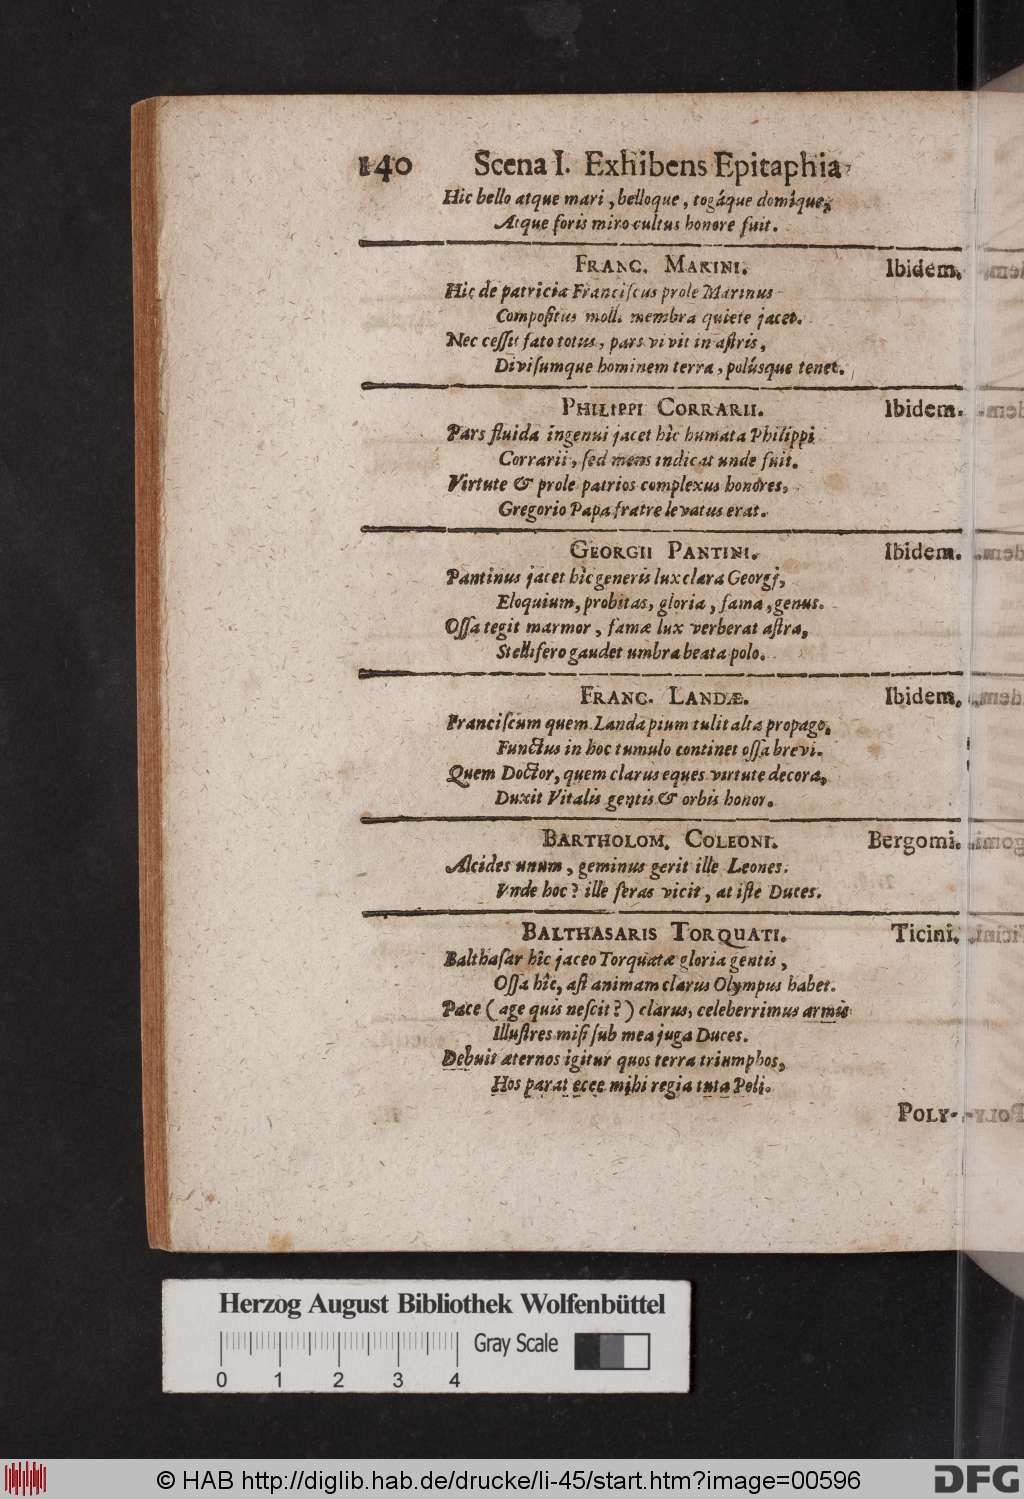 140 Scena I. Exhibens Epitaphia
Hic bello atque mari, belloque, togáque domîque,
Atque foris miro cultus honore fuit.
FRANC. MARINI. Ibidem.
Hic de patricia Franciſcus prole Marinus
Compoſitus molli membra quiete jacet.
Nec ceſſit fato totus, pars vivit in aſtris,
Diviſumque hominem terra, polúsque tenet.
PHILIPPI CORRARII. Ibidem.
Pars fluida ingenui jacet hîc humata Philippi
Corrarii, ſed mens indicat unde fuit.
Virtute & prole patrios complexus honores,
Gregorio Papa fratre levatus erat.
GEORGII PANTINI. Ibidem.
Pantinus jacet hîc generis lux clara Georgj,
Eloquium, probitas, gloria, fama, genus.
Oſſa tegit marmor, famæ lux verberat aſtra,
Stelliſero gaudet umbra beata polo.
FRANC. LANDÆ. Ibidem.
Franciſcum quem Landa pium tulit alta propago,
Functus in hoc tumulo continet oſſa brevi.
Quem Doctor, quem clarus eques virtute decora,
Duxit Vitalis gentis & orbis honor.
BARTHOLOM. COLEONI. Bergomi.
Alcides unum, geminus gerit ille Leones.
Vnde hoc? ille feras vicit, at iſte Duces.
BALTHASARIS TORQUATI. Ticini.
Balthaſar hîc jaceo Torquatæ gloria gentis,
Oſſa hîc, aſt animam clarus Olympus habet.
Pace (age quis neſcit?) clarus, celeberrimus armis
Illuſtres miſi ſub mea juga Duces.
Debuit æternos igitur quos terra triumphos,
Hos parat ecce mihi regia tuta Poli.
POLY-
Herzog August Bibliothek Wolfenbüttel
Gray Scale
0 1 2 3 4
© HAB http://diglib.hab.de/drucke/li-45/start.htm?image=00596
DFG